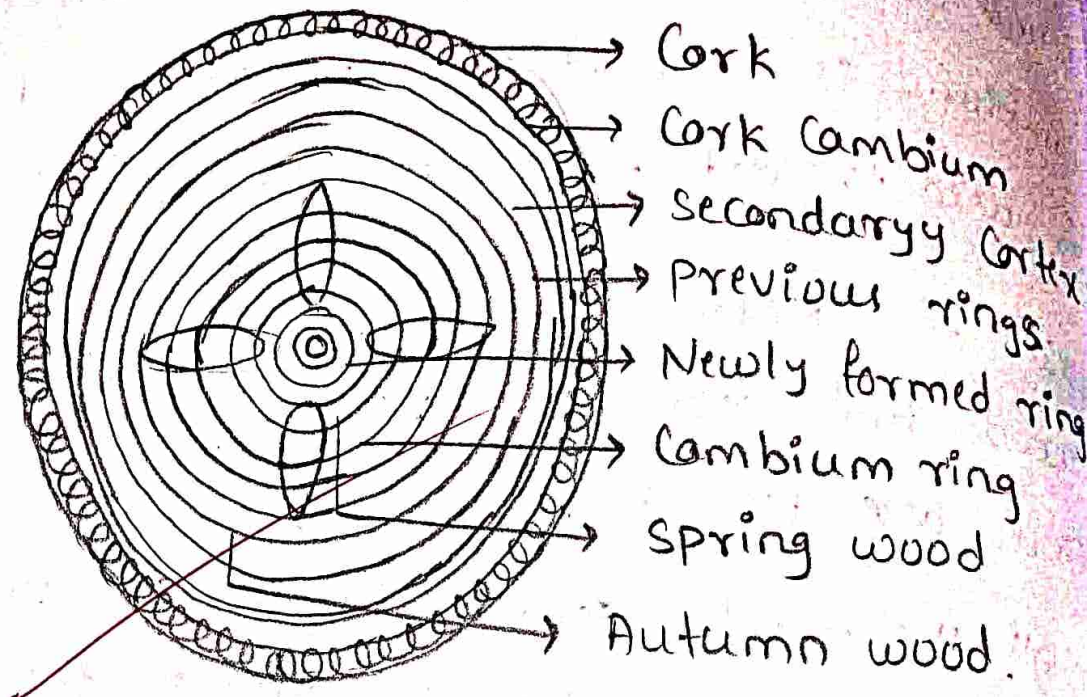 Cork
Cork Cambium
Secondaryy Cortex
Previous rings.
Newly formed ring
Cambium ring
Spring wood
Autumn wood.